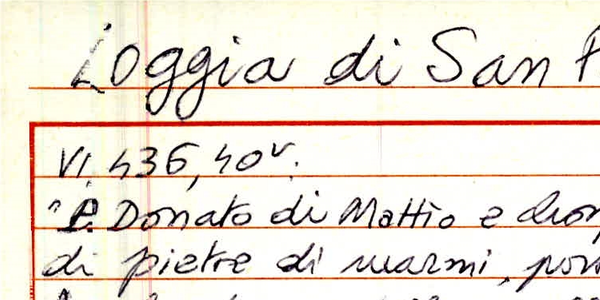 Loggia di San P
VI. 436, 40v.
"P. Donato di Mattio e
di pietre di marmi, por